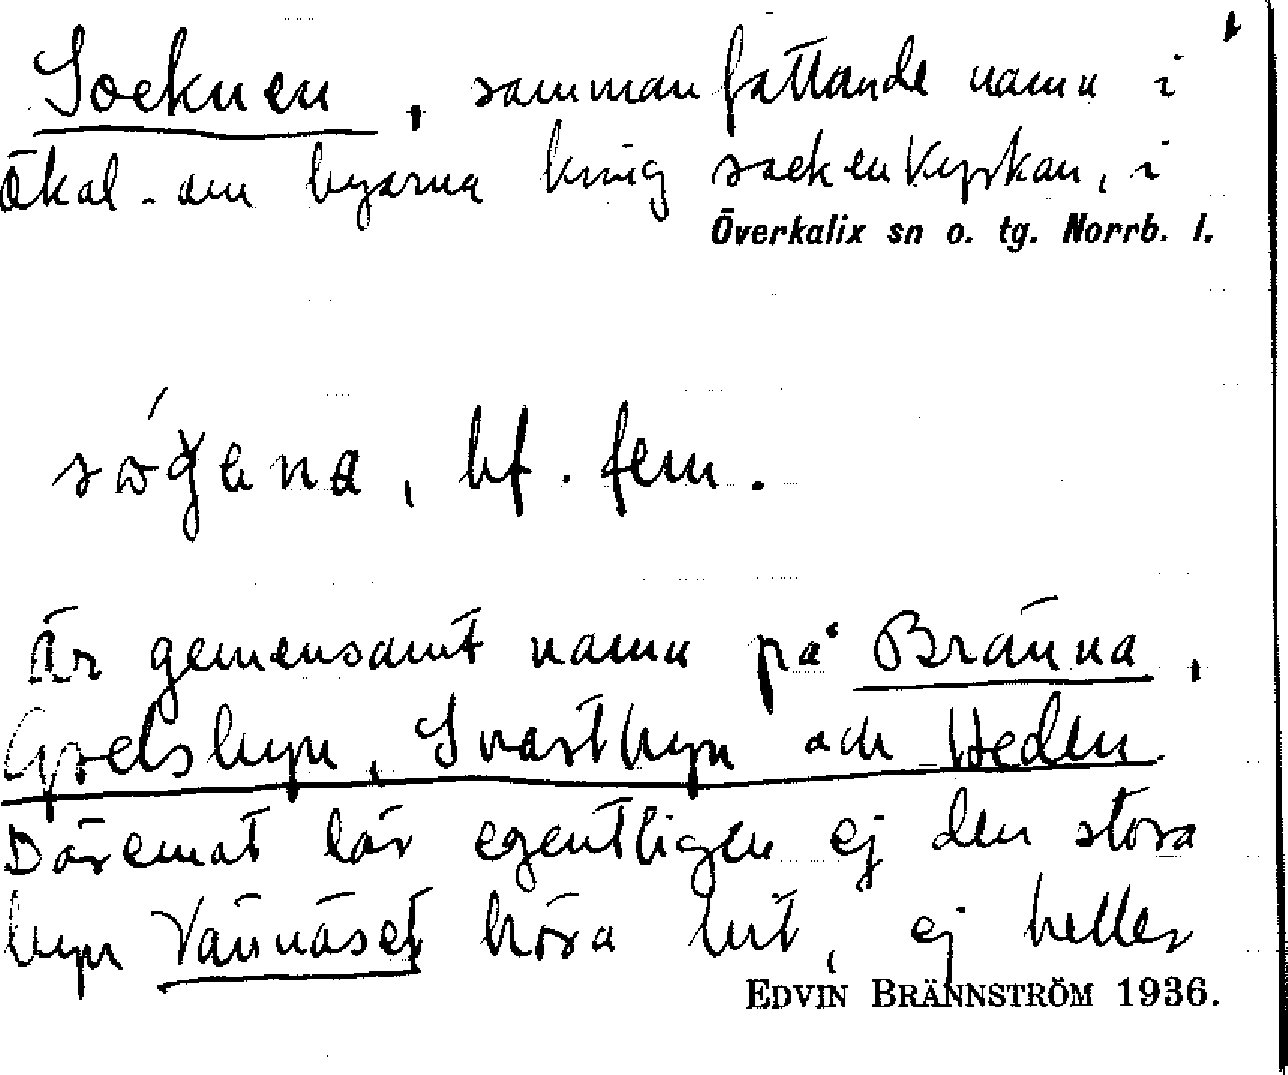 Socknen, sammanfattande namn i
Ökal. om byarna kring sockenkyrkan, i
Överkalix sn o. tg. Norrb. l.
bf. fem.
Är gemensamt namn på Bränna,
Grelsbyn, Svartbyn och Heden
Däremot lär egentligen ej den stora
byn Vännäset höra hit, ej heller
EDVIN BRÄNNSTRÖM 1936.